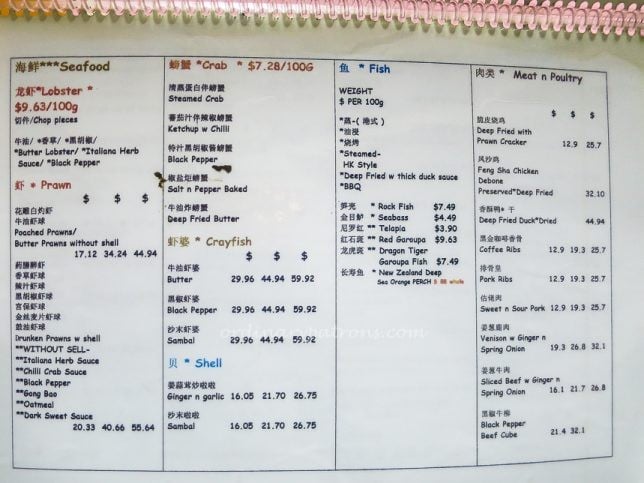 海鲜***Seafood
龙虾*Lobster *
$9.63/100g
切件/Chop pieces
牛油/ *香草/ *黑胡椒/
*Butter Lobster/ *Italiana Herb
Sauce/ *Black Pepper
虾 * Prawn
$ $ $
花雕白灼虾
牛油虾球
Poached Prawns/
Butter Prawns without shell
17.12 34.24 44.94
药膳醉虾
香草虾球
辣汁虾球
黑胡椒虾球
宫保虾球
金丝麦片虾球
豉油虾球
Drunken Prawns w shell
**WITHOUT SELL-
**Italiana Herb Sauce
**Chilli Crab Sauce
**Black Pepper
**Gong Bao
**Oatmeal
**Dark Sweet Sauce
20.33 40.66 55.64
螃蟹 *Crab * $7.28/100G
清蒸蛋白伴螃蟹
Steamed Crab
蕃茄汁伴辣椒螃蟹
Ketchup w Chilli
特汁黑胡椒酱螃蟹
Black Pepper
椒盐焗螃蟹
Salt n Pepper Baked
牛油炸螃蟹
Deep Fried Butter
虾婆 * Crayfish
$ $ $
牛油虾婆
Butter 29.96 44.94 59.92
黑椒虾婆
Black Pepper 29.96 44.94 59.92
沙末虾婆
Sambal 29.96 44.94 59.92
贝 * Shell
姜蒜茸炒啦啦
Ginger n garlic 16.05 21.70 26.75
沙末啦啦
Sambal 16.05 21.70 26.75
鱼 * Fish
WEIGHT
$ PER 100g
*蒸-( 港式 )
*油浸
*烧烤
*Steamed-
HK Style
*Deep Fried w thick duck sauce
*BBQ
笋壳 * Rock Fish $7.49
金目鲈 * Seabass $4.49
尼罗红 ** Telapia $3.90
红石斑 ** Red Garoupa $9.63
龙虎斑 ** Dragon Tiger
Garoupa Fish $7.49
长寿鱼 * New Zealand Deep
Sea Orange PERCH $ 88 whole
肉类 * Meat n Poultry
$ $ $
脆皮烧鸡
Deep Fried with
Prawn Cracker 12.9 25.7
风沙鸡
Feng Sha Chicken
Debone
Preserved*Deep Fried 32.10
香酥鸭* 干
Deep Fried Duck*Dried 44.94
黑金咖啡香骨
Coffee Ribs 12.9 19.3 25.7
排骨皇
Pork Ribs 12.9 19.3 25.7
估佬肉
Sweet n Sour Pork 12.9 19.3 25.7
姜葱鹿肉
Venison w Ginger n
Spring Onion 19.3 26.8 32.1
姜葱牛肉
Sliced Beef w Ginger n
Spring Onion 16.1 21.7 26.8
黑椒牛柳
Black Pepper
Beef Cube 21.4 32.1
ordinarypatrons.com